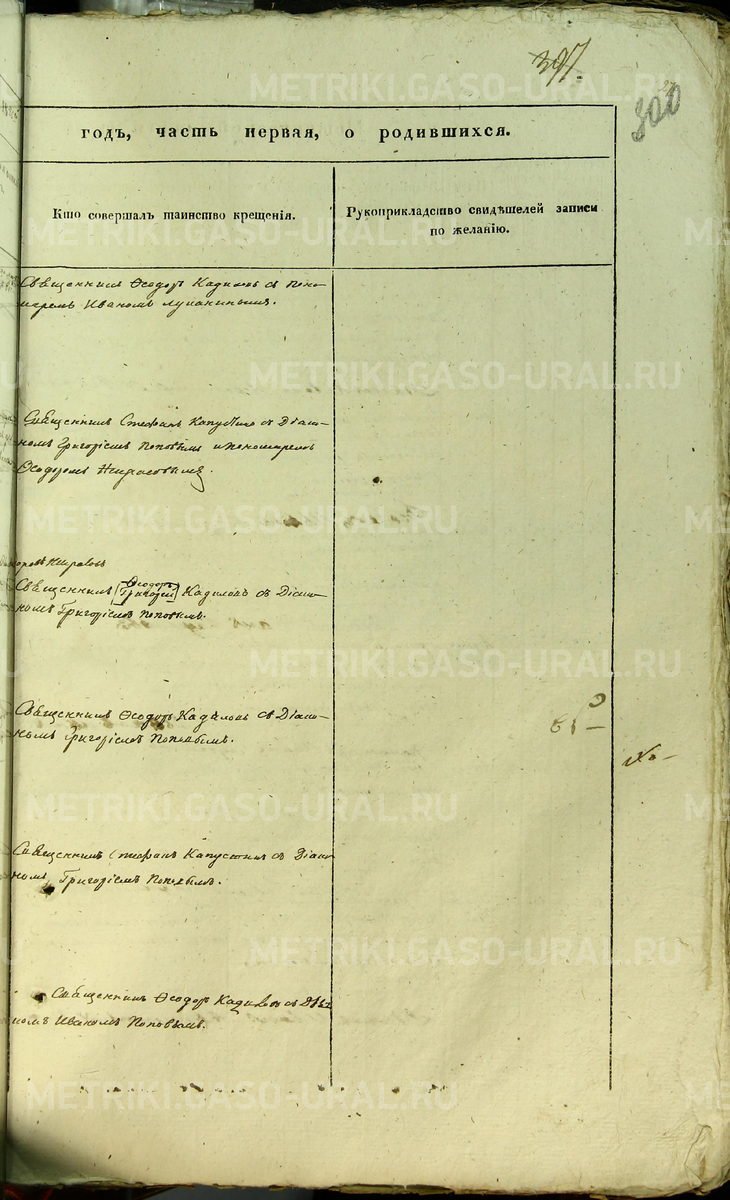 397.
300
годъ, часть первая, о родившихся.
Кто совершалъ таинство крещенія.
Рукоприкладство свидѣтелей записи
по желанію.
Священникъ Ѳеодоръ Кадиловъ съ поно-
маремъ Иваномъ Лупанинымъ.
Священникъ Стефанъ Капустинъ съ Діако-
номъ Григоріемъ Поповымъ и пономаремъ
Ѳеодоромъ Некрасовымъ.
Ѳеодоръ
Священникъ Григорій Кадиловъ съ Діако-
номъ Григоріемъ Поповымъ.
Священникъ Ѳеодоръ Кадиловъ съ Діако-
номъ Григоріемъ Поповымъ.
Священникъ Стефанъ Капустинъ съ Діако-
номъ Григоріемъ Поповымъ.
Священникъ Ѳеодоръ Кадиловъ съ Діако-
номъ Иваномъ Поповымъ.
METRIKI.GASO-URAL.RU